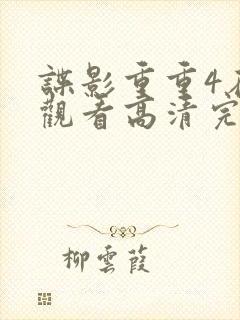 諜影重重4
觀看高清完
柳雲葭